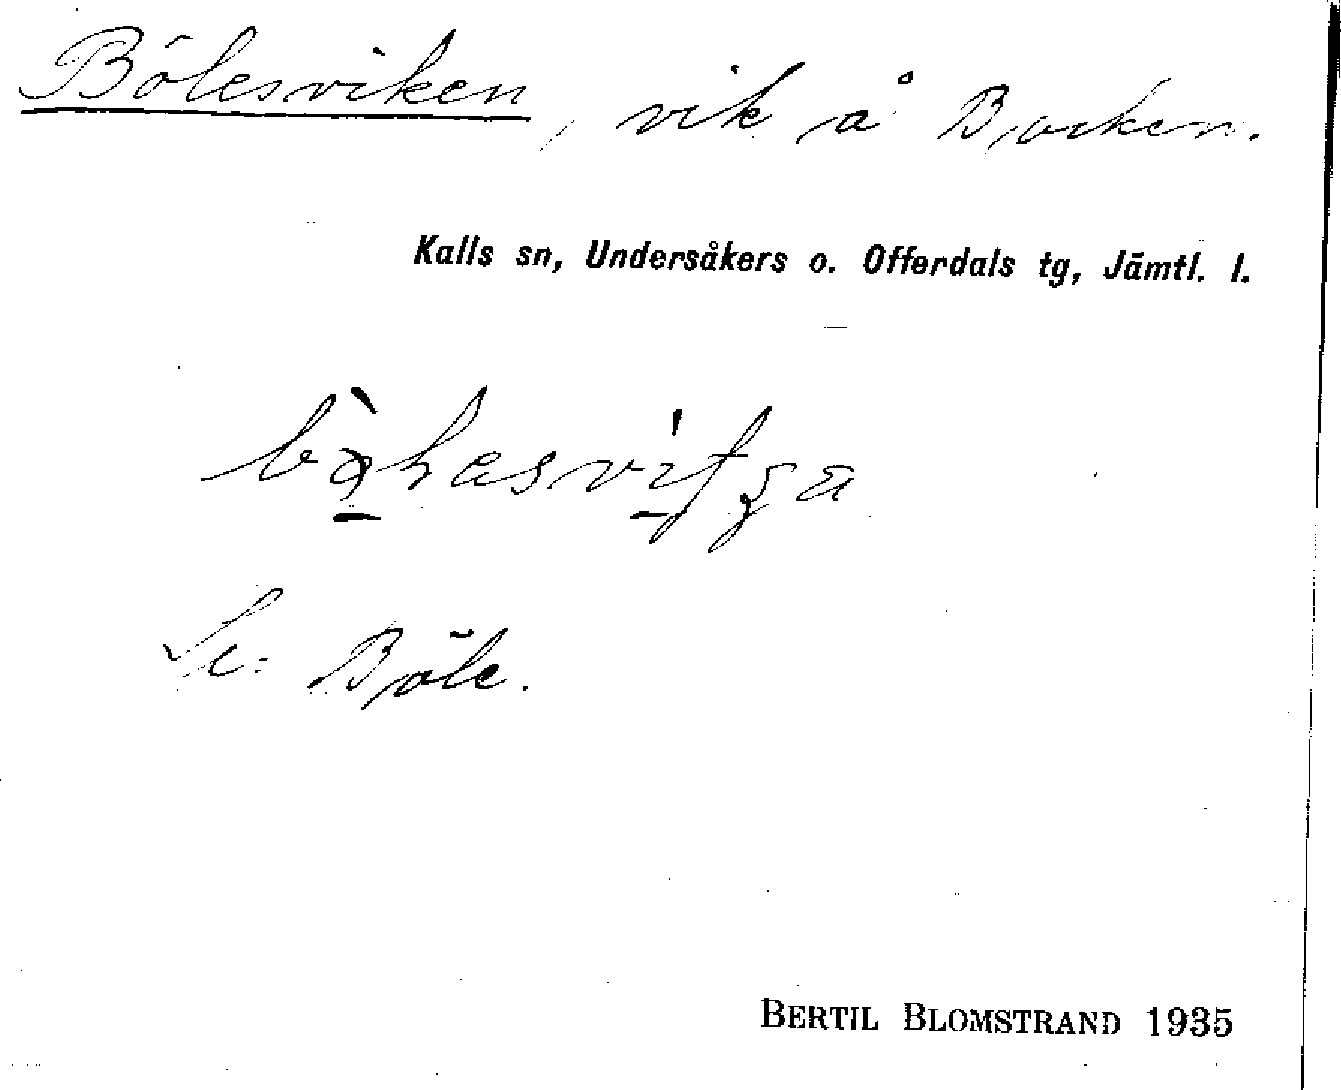 Bölesviken, vik å Bjorken.
Kalls sn, Undersåkers o. Offerdals tg, Jämtl. l.
Se: Böle.
BERTIL BLOMSTRAND 1935